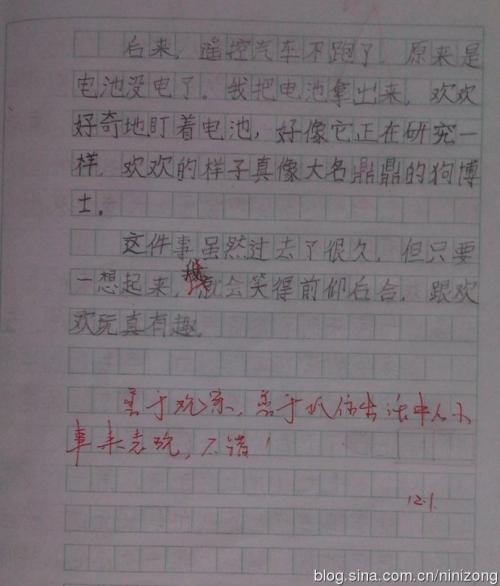 后来，遥控汽车不跑了。原来是
电池没电了。我把电池拿出来，欢欢
好奇地盯着电池，好像它正在研究一
样。欢欢的样子真像大名鼎鼎的狗博
士。
这件事虽然过去了很久，但只要
一想起来，我就会笑得前仰后合。跟欢
欢玩真有趣。
善于观察，善于抓住生活中的小
事来表现，不错！
12.1.
blog.sina.com.cn/ninizong